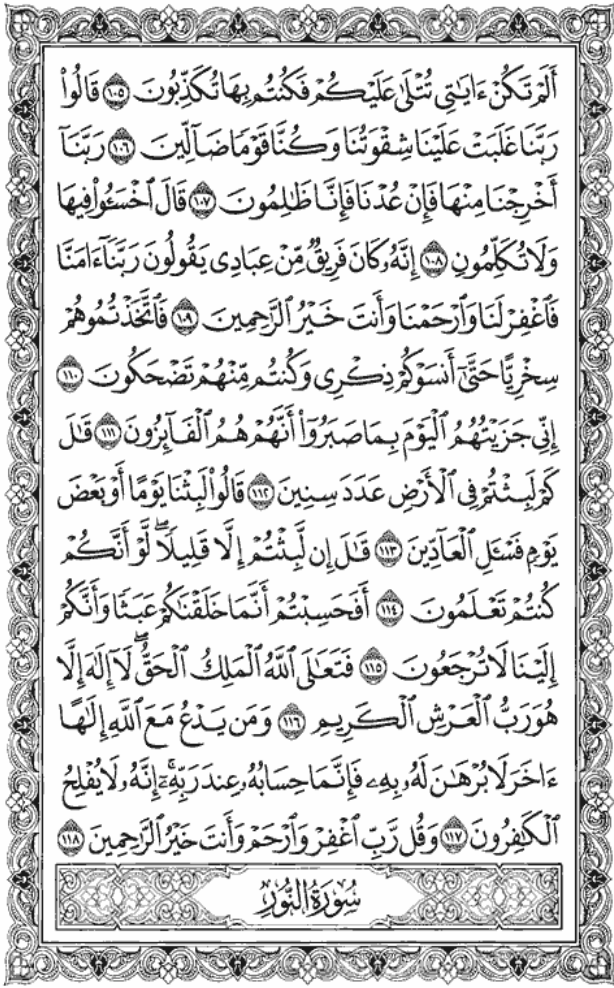 أَلَمۡ تَكُنۡ ءَايَٰتِي تُتۡلَىٰ عَلَيۡكُمۡ فَكُنتُم بِهَا تُكَذِّبُونَ ١٠٥ قَالُواْ
رَبَّنَا غَلَبَتۡ عَلَيۡنَا شِقۡوَتُنَا وَكُنَّا قَوۡمٗا ضَآلِّينَ ١٠٦ رَبَّنَآ
أَخۡرِجۡنَا مِنۡهَا فَإِنۡ عُدۡنَا فَإِنَّا ظَٰلِمُونَ ١٠٧ قَالَ ٱخۡسَـُٔواْ فِيهَا
وَلَا تُكَلِّمُونِ ١٠٨ إِنَّهُۥ كَانَ فَرِيقٞ مِّنۡ عِبَادِي يَقُولُونَ رَبَّنَآ ءَامَنَّا
فَٱغۡفِرۡ لَنَا وَٱرۡحَمۡنَا وَأَنتَ خَيۡرُ ٱلرَّٰحِمِينَ ١٠٩ فَٱتَّخَذۡتُمُوهُمۡ
سِخۡرِيًّا حَتَّىٰٓ أَنسَوۡكُمۡ ذِكۡرِي وَكُنتُم مِّنۡهُمۡ تَضۡحَكُونَ ١١٠
إِنِّي جَزَيۡتُهُمُ ٱلۡيَوۡمَ بِمَا صَبَرُوٓاْ أَنَّهُمۡ هُمُ ٱلۡفَآئِزُونَ ١١١ قَٰلَ
كَمۡ لَبِثۡتُمۡ فِي ٱلۡأَرۡضِ عَدَدَ سِنِينَ ١١٢ قَالُواْ لَبِثۡنَا يَوۡمًا أَوۡ بَعۡضَ
يَوۡمٖ فَسۡـَٔلِ ٱلۡعَآدِّينَ ١١٣ قَٰلَ إِن لَّبِثۡتُمۡ إِلَّا قَلِيلٗاۖ لَّوۡ أَنَّكُمۡ
كُنتُمۡ تَعۡلَمُونَ ١١٤ أَفَحَسِبۡتُمۡ أَنَّمَا خَلَقۡنَٰكُمۡ عَبَثٗا وَأَنَّكُمۡ
إِلَيۡنَا لَا تُرۡجَعُونَ ١١٥ فَتَعَٰلَى ٱللَّهُ ٱلۡمَلِكُ ٱلۡحَقُّۖ لَآ إِلَٰهَ إِلَّا
هُوَ رَبُّ ٱلۡعَرۡشِ ٱلۡكَرِيمِ ١١٦ وَمَن يَدۡعُ مَعَ ٱللَّهِ إِلَٰهًا
ءَاخَرَ لَا بُرۡهَٰنَ لَهُۥ بِهِۦ فَإِنَّمَا حِسَابُهُۥ عِندَ رَبِّهِۦٓۚ إِنَّهُۥ لَا يُفۡلِحُ
ٱلۡكَٰفِرُونَ ١١٧ وَقُل رَّبِّ ٱغۡفِرۡ وَٱرۡحَمۡ وَأَنتَ خَيۡرُ ٱلرَّٰحِمِينَ ١١٨
سُورَةُ النُّورِ